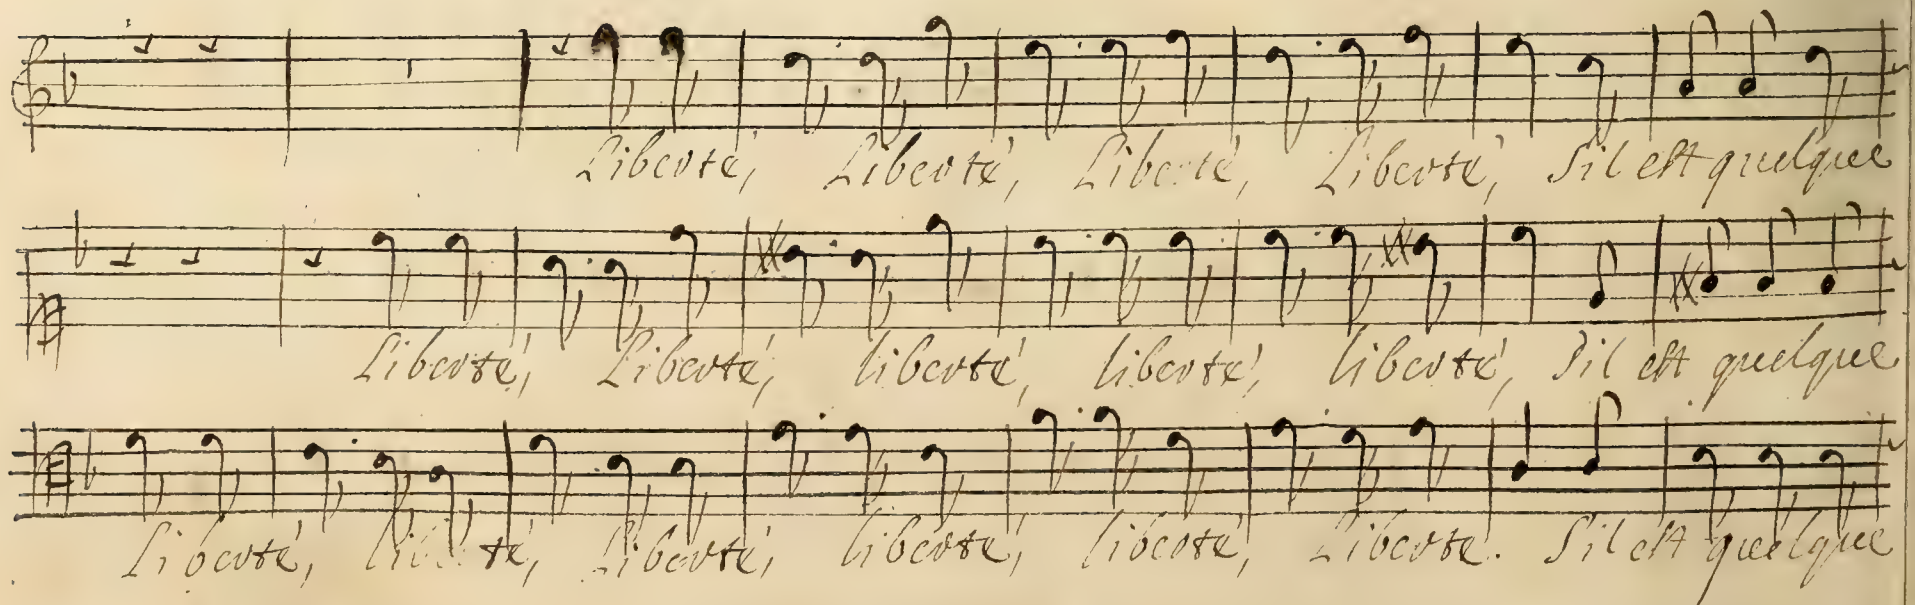 Liberté, Liberté, Liberté, Liberté, S'il est quelque
Liberté, Liberté, liberté, liberté, liberté, S'il est quelque
Liberté, liberté, Liberté, liberté, liberté, Liberté. S'il est quelque